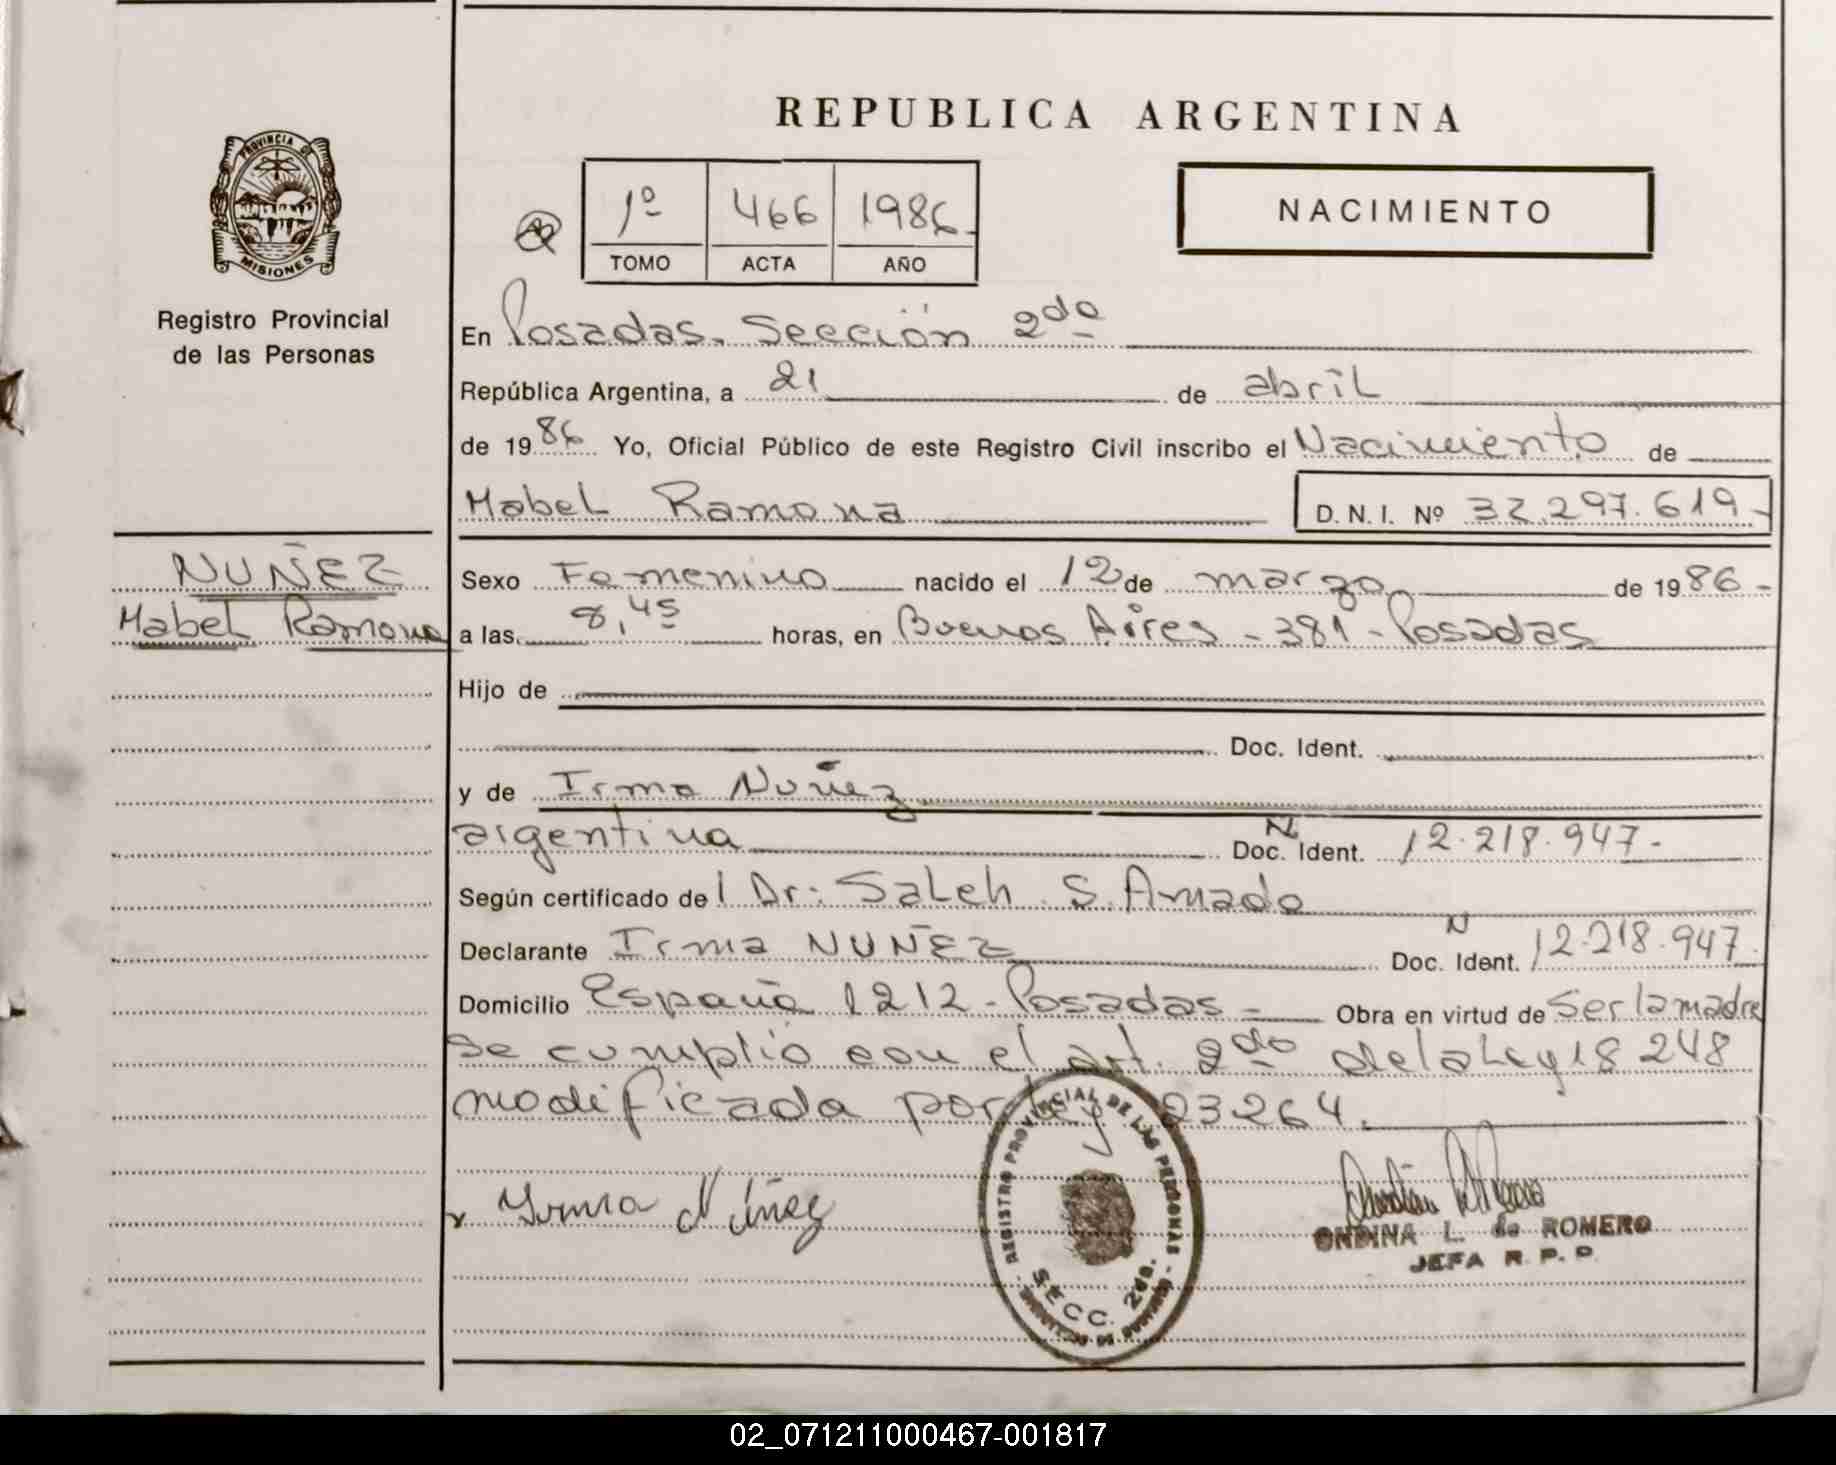 REPUBLICA ARGENTINA
PROVINCIA DE
MISIONES
Registro Provincial
de las Personas
1º 466 1986
TOMO ACTA AÑO
NACIMIENTO
En Posadas. Sección 2da
República Argentina, a 21 de abril
de 1986 Yo, Oficial Público de este Registro Civil inscribo el Nacimiento de
Mabel Ramona D. N. I. Nº 32.297.619-
NUÑEZ
Mabel Ramona
Sexo Femenino nacido el 12 de marzo de 1986-
a las 8,45 horas, en Buenos Aires - 381 - Posadas
Hijo de
Doc. Ident.
y de Irma Nuñez
argentina Doc. N Ident. 12.218.947-
Según certificado del Dr: Saleh S. Amado
Declarante Irma NUÑEZ Doc. N Ident. 12.218.947
Domicilio España 1212 - Posadas - Obra en virtud de Ser la madre
se cumplió con el art. 2do de la Ley 18248
modificada por Ley 23264.
Irma Núñez
REGISTRO PROVINCIAL DE LAS PERSONAS
SECC. 2da.
ONDINA L. de ROMERO
JEFA R. P. P.
02_071211000467-001817